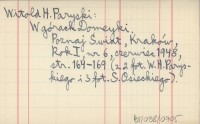 Witold H. Paryski:
W górach Domeyki.
Poznaj Świat, Kraków,
Rok I, nr 6, czerwiec 1948,
str. 167-169 (z 2 fot. W.H. Parys-
kiego i 3 fot. S. Osieckiego).